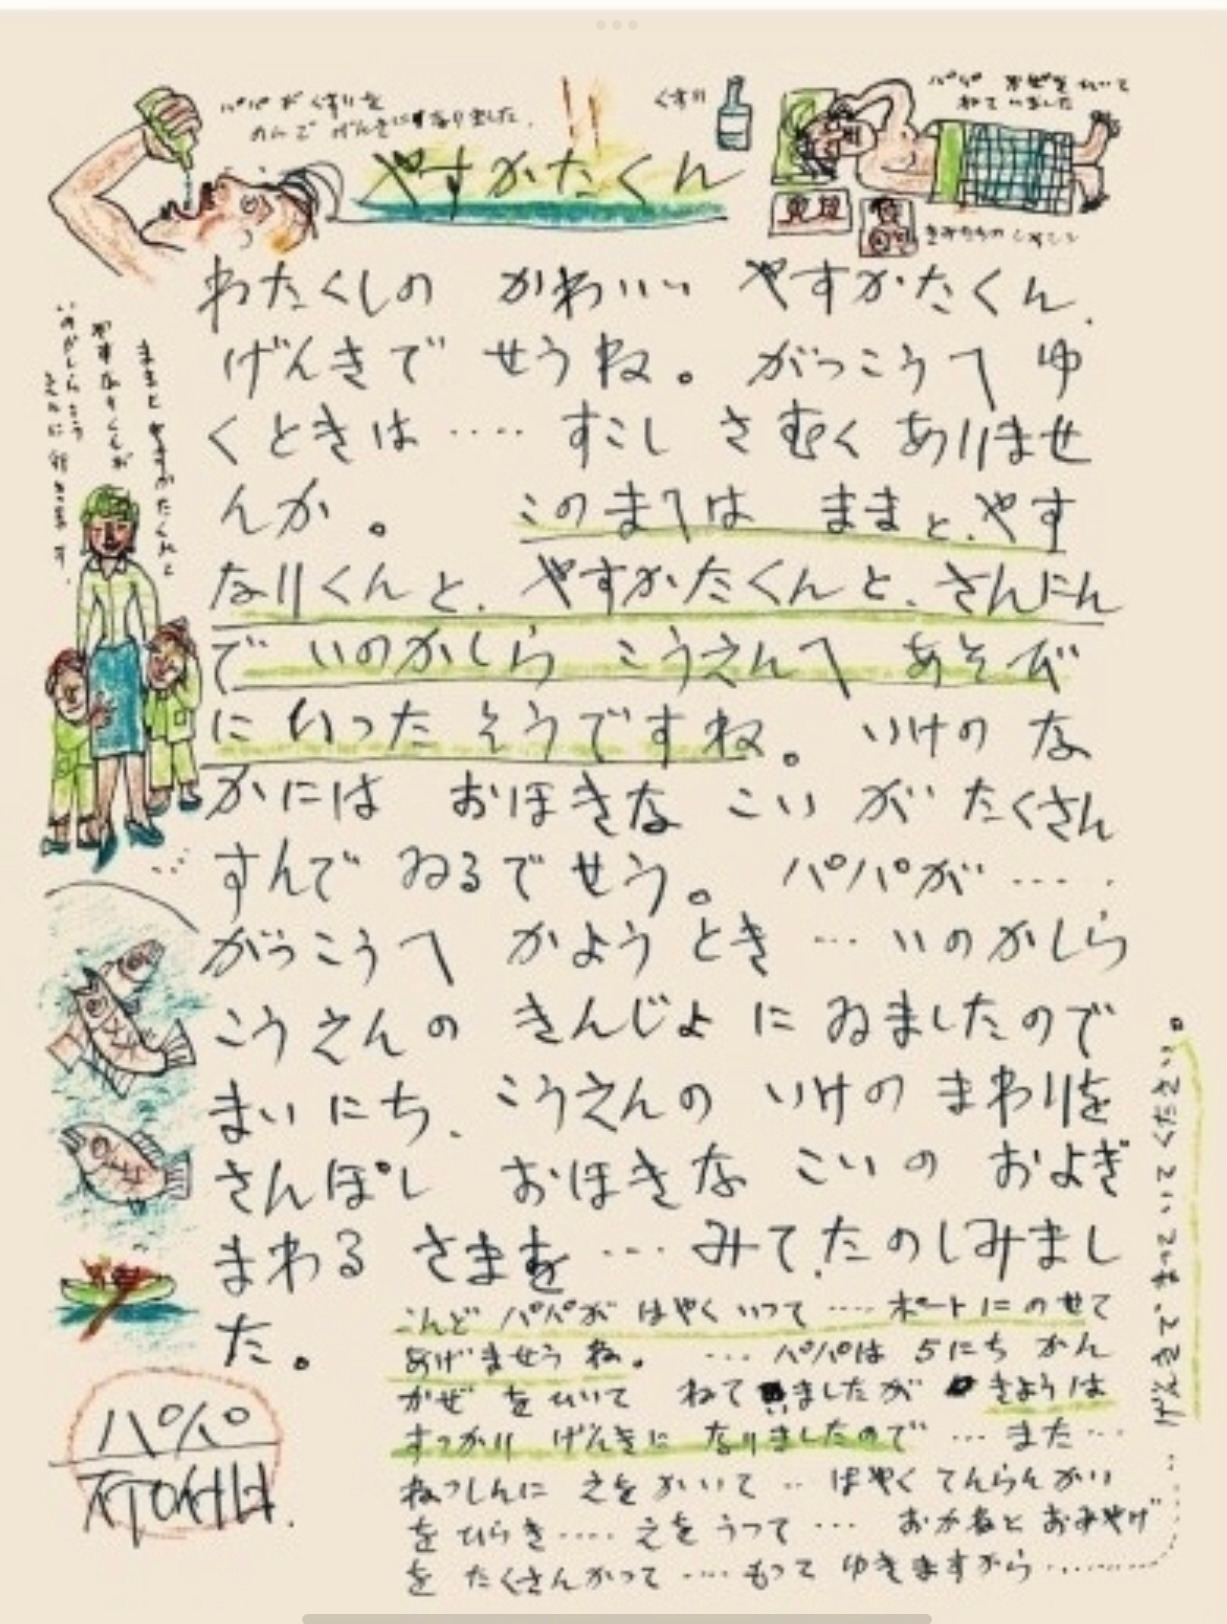 パパがくすりを
のんで げんきになりました.
くすり
パパ かぜをひいて
ねていました
きみたちの しやしん
やすかたくん
ままと やすかたくんと
やすなりくんが
いのかしらこう
えんに 行きます.
わたくしの かわいい やすかたくん.
げんきで せうね。がっこうへ ゆ
くときは‥‥ すこし さむく ありませ
んか。 このまへは ままと.やす
なりくんと. やすかたくんと.さんにん
で いのかしら こうえんへ あそび
に いった そうですね。いけの な
かには おほきな こい が たくさん
すんで ゐるで せう。 パパが‥‥
がっこうへ かよう とき … いのかしら
こうえんの きんじよ に ゐましたので
まいにち. こうえんの いけの まわりを
さんぽし おほきな こいの およぎ
まわる さまを … みて.たのしみまし
た。
こんど パパが はやく いって ‥‥ ボートに のせて
あげませうね。 … パパは 5にち かん
かぜ をひいて ねて いましたが きようは
すっかり げんきに なりましたので … また…
ねっしんに えを かいて ‥ はやく てんらんかい
を ひらき‥‥ えを うって … おかねと おみやげ
を たくさんかって ‥‥ もって ゆきますから‥‥‥‥
げんきで まっていて ください。
パパ